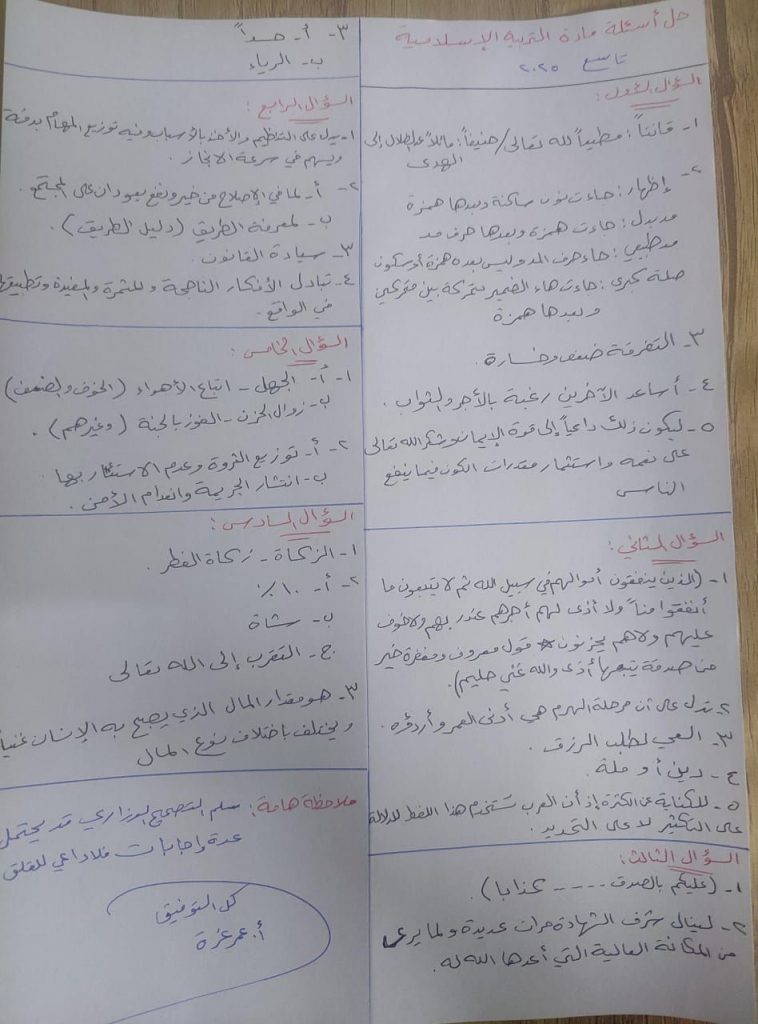 حل أسئلة مادة التربية الإسلامية
تاسع ٢٠٢٥
السؤال الأول:
١- قانتاً: مطيعاً لله تعالى / حنيفاً: مائلاً عن الضلال إلى
الهدى
٢- إظهار: جاءت نون ساكنة وبعدها همزة
مد بدل: جاءت همزة وبعدها حرف مد
مد طبيعي: جاء حرف المد وليس بعده همزة أو سكون
صلة كبرى: جاءت هاء الضمير متحركة بين متحركين
وبعدها همزة
٣- التفرقة ضعف وخسارة.
٤- أساعد الآخرين رغبة بالأجر والثواب.
٥- ليكون ذلك داعياً إلى قوة الإيمان وشكر الله تعالى
على نعمه واستثمار مقدرات الكون فيما ينفع
الناس
السؤال الثاني:
١- (الذين ينفقون أموالهم في سبيل الله ثم لا يتبعون ما
أنفقوا مناً ولا أذى لهم أجرهم عند ربهم ولا خوف
عليهم ولا هم يحزنون * قول معروف ومغفرة خير
من صدقة يتبعها أذى والله غني حليم).
٢- تدل على أن مرحلة الهرم هي أدنى العمر وأردؤه.
٣- السعي لطلب الرزق.
٤- دين أو ملة.
٥- للكناية عن الكثرة إذ أن العرب تستخدم هذا اللفظ للدلالة
على التكثير لا على التحديد.
السؤال الثالث:
١- (عليكم بالصدق ..... كذابا).
٢- لينال شرف الشهادة مرات عديدة ولما يرى
من المكانة العالية التي أعدها الله له.
٣- أ- حسداً
ب- الرياء
السؤال الرابع:
١- يدل على التنظيم والأخذ بالأسباب وفيه توزيع المهام بدقة
ويسهم في سرعة الإنجاز.
٢- أ- لما في الإصلاح من خير ونفع يعودان على المجتمع.
ب- لمعرفة الطريق (دليل الطريق).
٣- سيادة القانون.
٤- تبادل الأفكار الناجحة والمثمرة والمفيدة وتطبيقها
في الواقع.
السؤال الخامس:
١- أ- الجهل - اتباع الأهواء (الخوف والضعف)
ب- زوال الحزن - الفوز بالجنة (وغيرهم).
٢- أ- توزيع الثروة وعدم الاستئثار بها.
ب- انتشار الجريمة وانعدام الأمن.
السؤال السادس:
١- الزكاة - زكاة الفطر.
٢- أ- ١٠٪
ب- شاة
ج- التقرب إلى الله تعالى
٣- هو مقدار المال الذي يصبح به الإنسان غنياً
ويختلف باختلاف نوع المال
ملاحظة هامة: سلم التصحيح الوزاري قد يحتمل
عدة إجابات فلا داعي للقلق
كل التوفيق
أ. عمر عزة